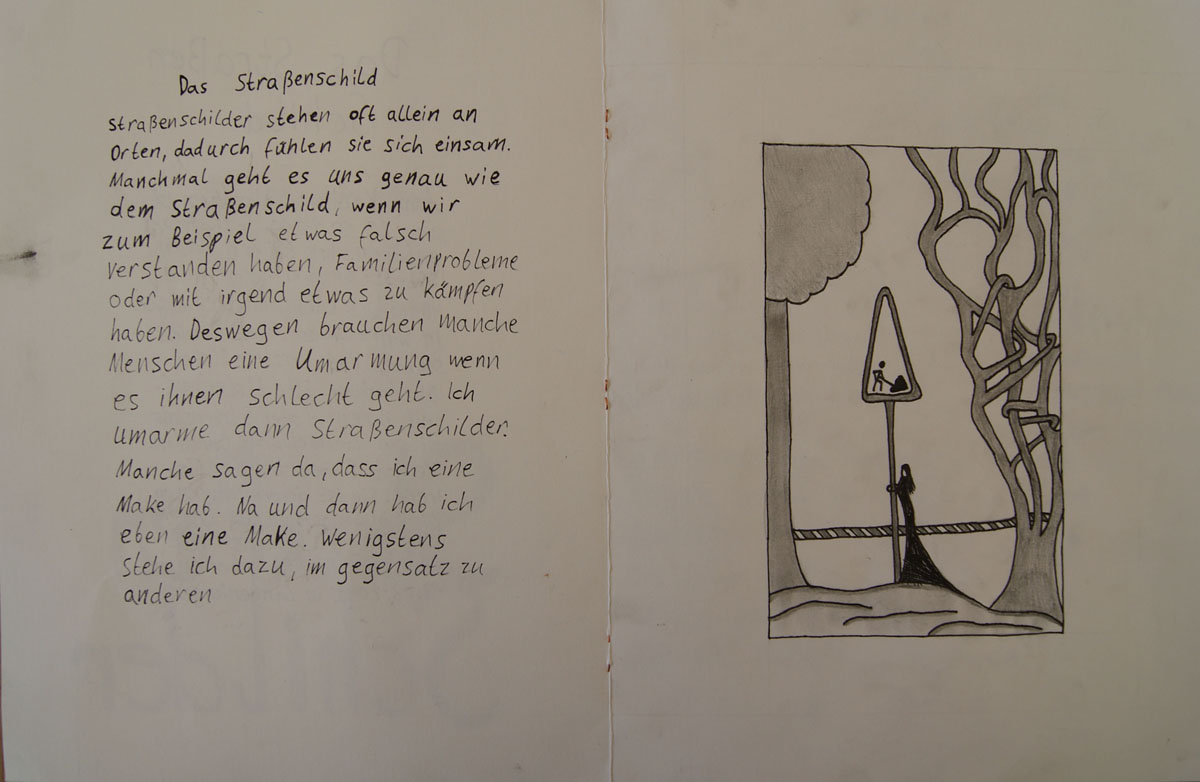 Das Straßenschild
Straßenschilder stehen oft allein an
Orten, dadurch fühlen sie sich einsam.
Manchmal geht es uns genau wie
dem Straßenschild, wenn wir
zum Beispiel etwas falsch
verstanden haben, Familienprobleme
oder mit irgend etwas zu kämpfen
haben. Deswegen brauchen Manche
Menschen eine Umarmung wenn
es ihnen schlecht geht. Ich
umarme dann Straßenschilder.
Manche sagen da, dass ich eine
Make hab. Na und dann hab ich
eben eine Make. Wenigstens
stehe ich dazu, im gegensatz zu
anderen